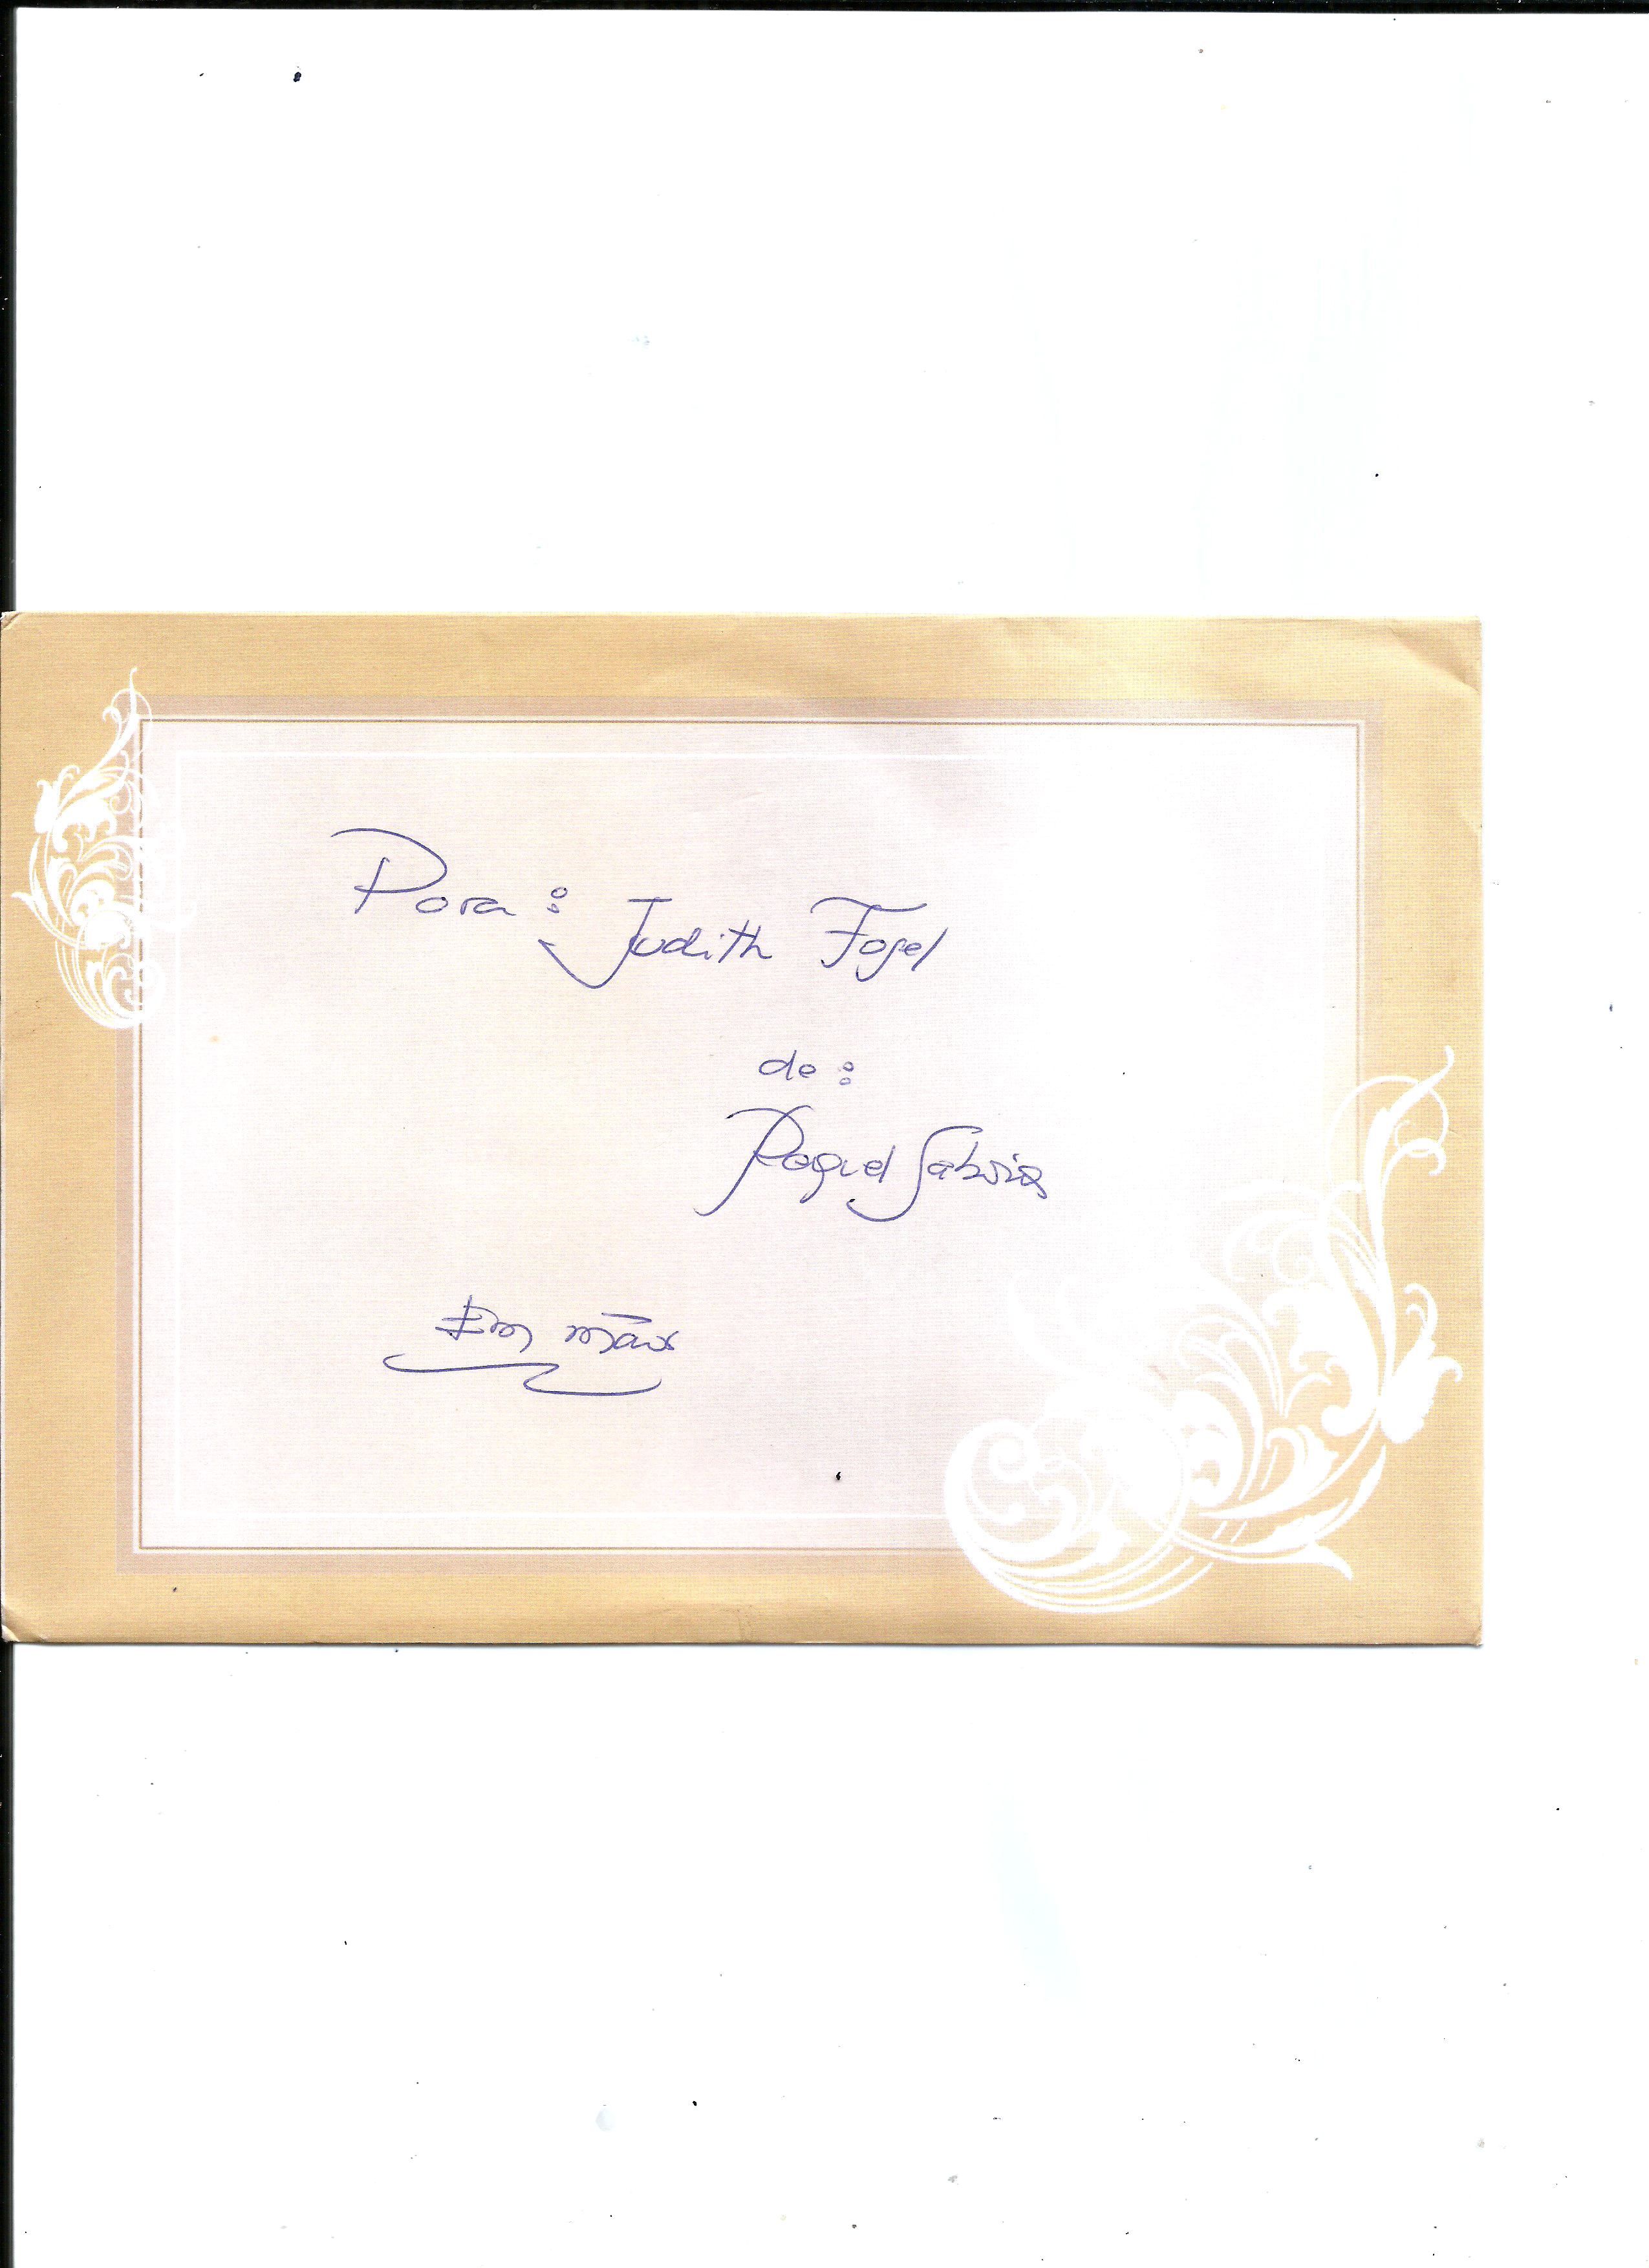 Para: Judith Fogel
de:
Raquel
Em mãos